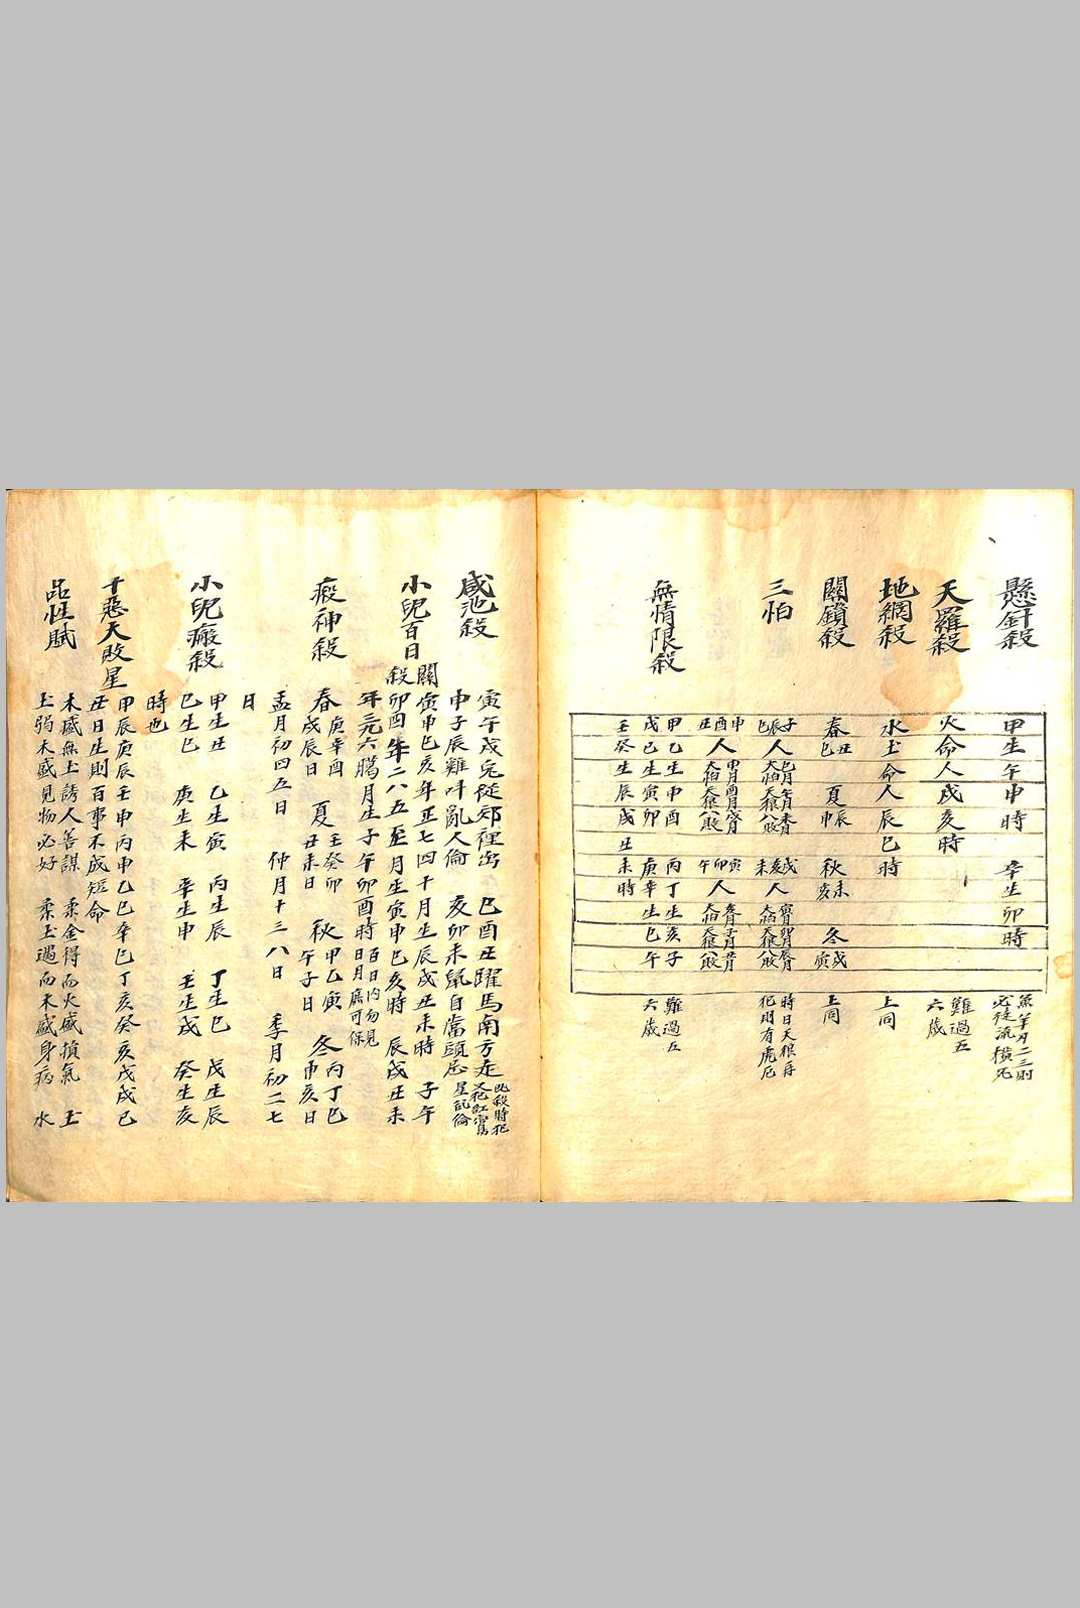 懸針殺
甲生 午申時 辛生 卯時
魚羊刃二三則
必徒流橫死
天羅殺
火命人戌亥時
難過五
六歲
地網殺
水土命人辰巳時
上同
關鎖殺
春 丑巳 夏 辰申 秋 未亥 冬 戌寅
上同
三怕
子辰巳人 巳月天怕 午月天狼 未月八敗
戌亥未人 寅月天怕 卯月天狼 辰月八敗
時日天狼再
犯用有虎厄
申酉丑人 甲月天怕 酉月天狼 戌月八敗
寅卯午人 亥月天怕 子月天狼 丑月八敗
無情限殺
甲乙生申酉 丙丁生亥子
戊己生寅卯 庚辛生巳午
壬癸生辰戌丑未時
難過五
六歲
咸池殺
寅午戌兔從茆裡出 巳酉丑躍馬南方走
申子辰雞呌亂人倫 亥卯未鼠自當頭忌
此殺時犯
又犯紅鸞
星乱倫
小兒百日關殺
寅申巳亥年正七四十月生辰戌丑未時 子午
卯酉年二八五至月生寅申巳亥時 辰戌丑未
年三元六臘月生子午卯酉時
百日內勿見
日月庶可保
瘢神殺
春 庚辛酉戌辰日 夏 壬癸卯丑未日 秋 甲乙寅午子日 冬 丙丁巳申亥日
孟月初四五日 仲月十三八日 季月初二七
日
小兒瘢殺
甲生丑 乙生寅 丙生辰 丁生巳 戊生辰
巳生巳 庚生未 辛生申 壬生戌 癸生亥
時也
十惡大敗星
甲辰庚辰壬申丙申乙巳辛巳丁亥癸亥戊戌己
丑日生則百事不成短命
品性賦
木盛無土誘人善謀 柔金得而火盛損氣 土
土弱木盛見物必好 柔土遇而木盛身病 水